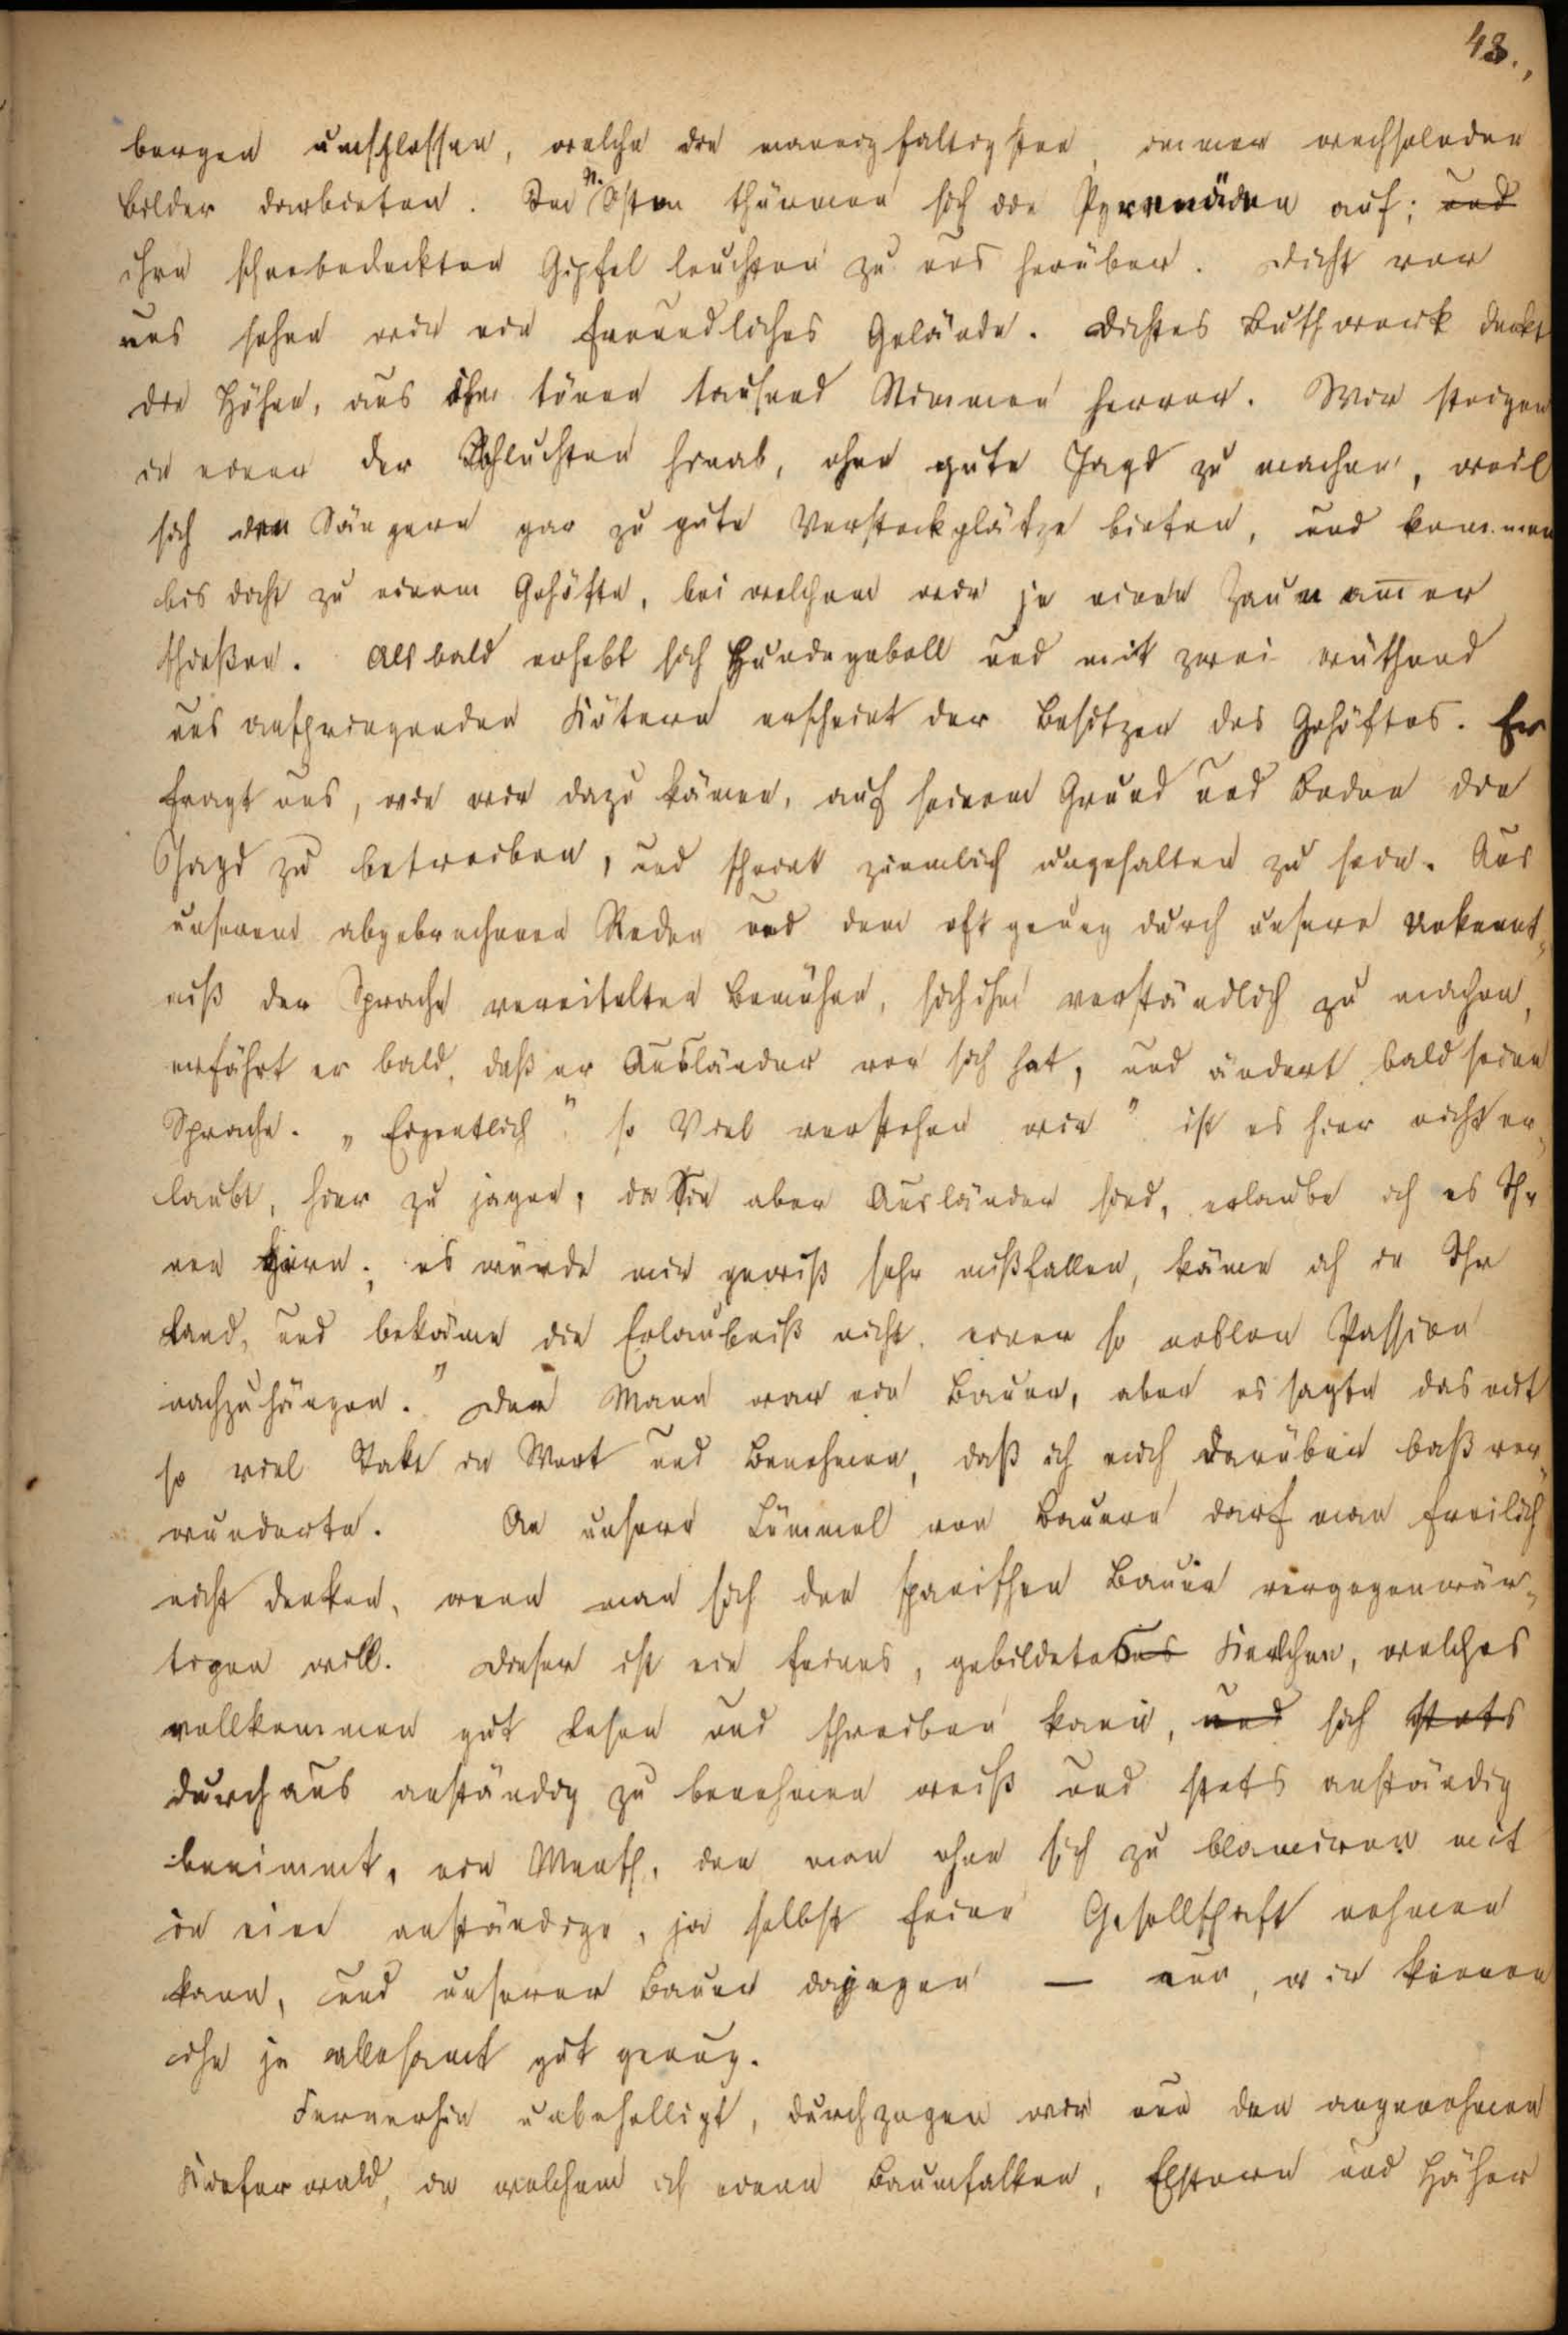 43.,
bergen umschlossen, welche die mannigfaltigsten, immer wechselnden
Bilder darbieten. Im N. Osten thürmen sich die Pyrenäen auf; und
ihre schneebedeckten Gipfel leuchten zu uns herüber. Dicht vor
uns sehen wir ein freundliches Gelände. Dichtes Buschwerk deckt
die Höhen, aus ihm tönen tausend Stimmen hervor. Wir steigen
in einen der Schluchten hinab, ohne gute Jagd zu machen, weil
sich den Sängern gar zu gute Versteckplätze bieten, und kommen
bis dicht zu einem Gehöfte, bei welchem wir je einen Zaunam̄er
schießen. Alsbald erhebt sich Hundegebell und mit zwei wüthend
uns anspringenden Kötern erscheint der Besitzer des Gehöftes. Er
fragt uns, wie wir dazu kämen, auf seinem Grund und Boden die
Jagd zu betreiben, und scheint ziemlich ungehalten zu sein. Aus
unseren abgebrochenen Reden und dem oft genug durch unsere Unkennt-
niß der Sprache vereitelten Bemühen, sich ihm verständlich zu machen,
erfährt er bald, daß er Ausländer vor sich hat, und ändert bald seine
Sprache. „Eigentlich" so Viel verstehen wir " ist es hier nicht er-
laubt, hier zu jagen, da Sie aber Ausländer sind, erlaube ich es Ih-
nen gern; es würde mir gewiß sehr mißfallen, käme ich in Ihr
Land, und bekäme die Erlaubniß nicht, einer so noblen Passion
nachzuhängen." Der Mann war ein Bauer, aber er sagte das mit
so viel Takt in Wort und Benehmen, daß ich mich darüber baß ver-
wunderte. An unsere Lümmel von Bauern darf man freilich
nicht denken, wenn man sich den spanischen Bauer vergegenwär-
tigen will. Dieser ist ein feines, gebildetes Kerlchen, welches
vollkommen gut lesen und schreiben kann, und sich stets
durchaus anständig zu benehmen weiß und stets anständig
benimmt, ein Mensch, den man ohne sich zu blamiren mit
in eine anständige, ja selbst feine Gesellschaft nehmen
kann, und unserer Bauer dagegen — nun, wir kennen
ihn ja allesamt gut genug.
Fernerhin unbehelligt, durchzogen wir nun den angenehmen
Kieferwald, in welchem ich einen Baumfalken, Elstern und Häher